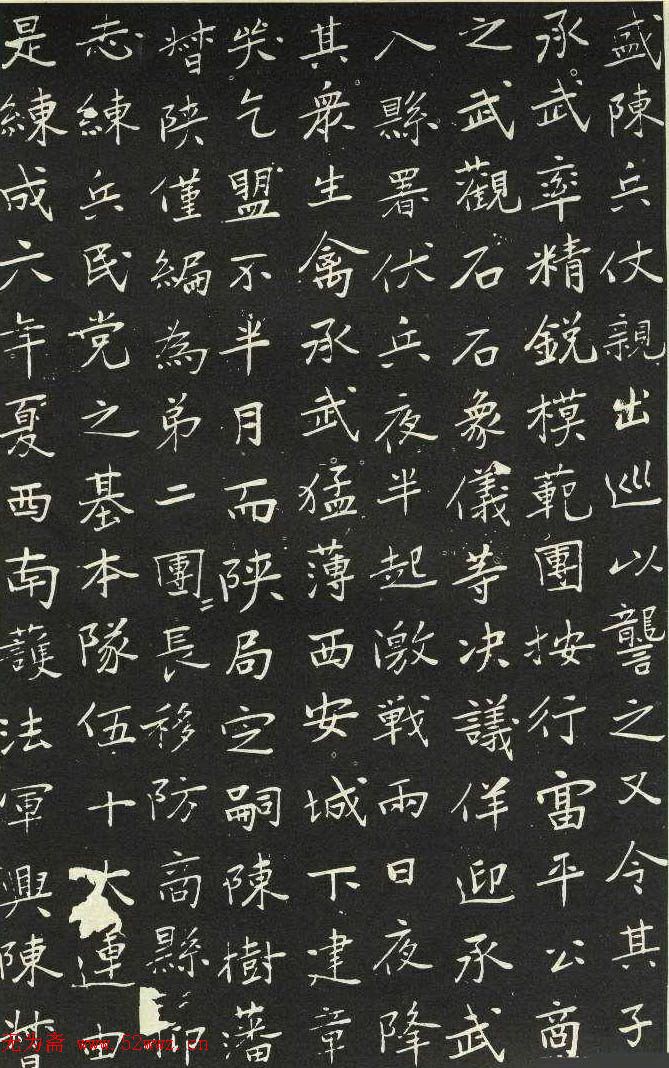 盛陳兵仗親出巡以讋之又令其子
承武率精銳模範團按行富平公商
之武觀石石象儀等决議佯迎承武
入縣署伏兵夜半起激戰兩日夜降
其衆生禽承武猛薄西安城下建章
哭乞盟不半月而陝局定嗣陳樹藩
督陝僅編為弟二團〻長移防商縣
志練兵民党之基本隊伍十大連由
是練成六年夏西南護法軍興陳督
无为斋 www.52wwz.cn